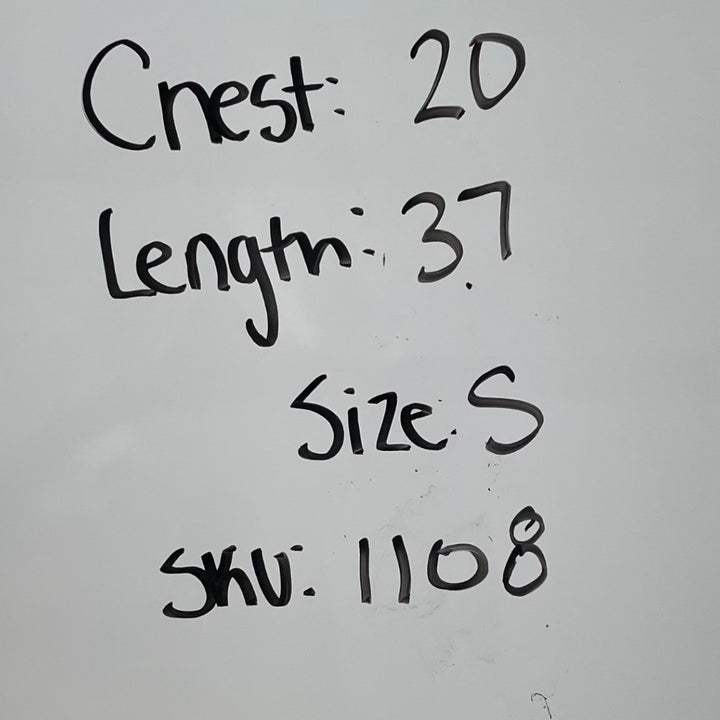 Chest: 20
Length: 37
Size: S
SKU: 1108